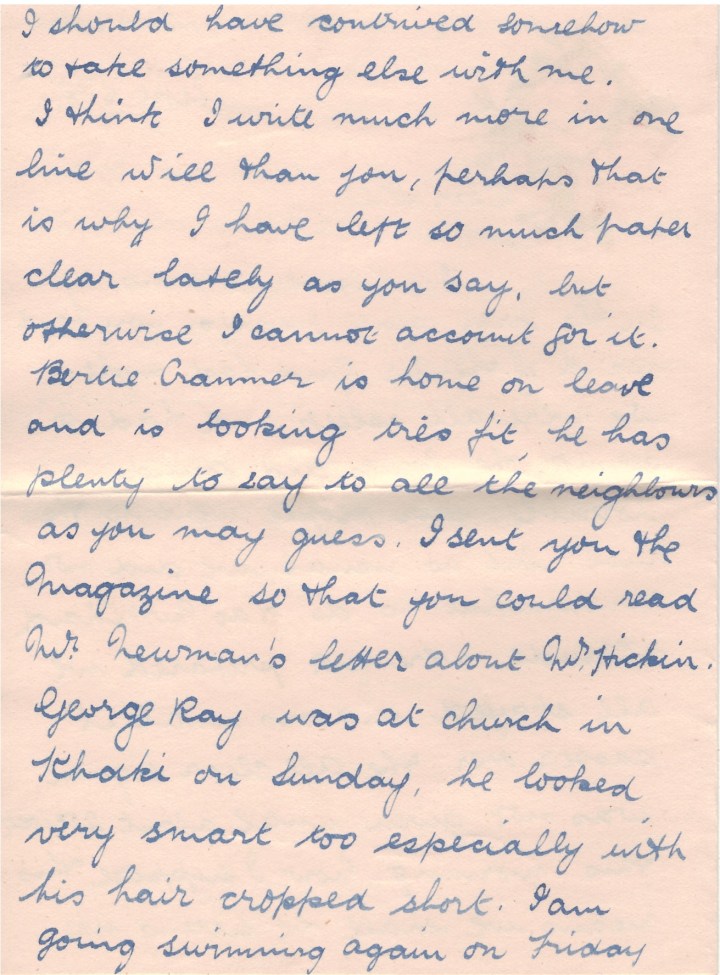 I should have contrived somehow
to take something else with me.
I think I write much more in one
line Will than you, perhaps that
is why I have left so much paper
clear lately as you say, but
otherwise I cannot account for it.
Bertie Cranmer is home on leave
and is looking très fit, he has
plenty to say to all the neighbours
as you may guess. I sent you the
Magazine so that you could read
Mr. Newman's letter about Mr. Hickin.
George Ray was at church in
Khaki on Sunday, he looked
very smart too especially with
his hair cropped short. I am
going swimming again on Friday